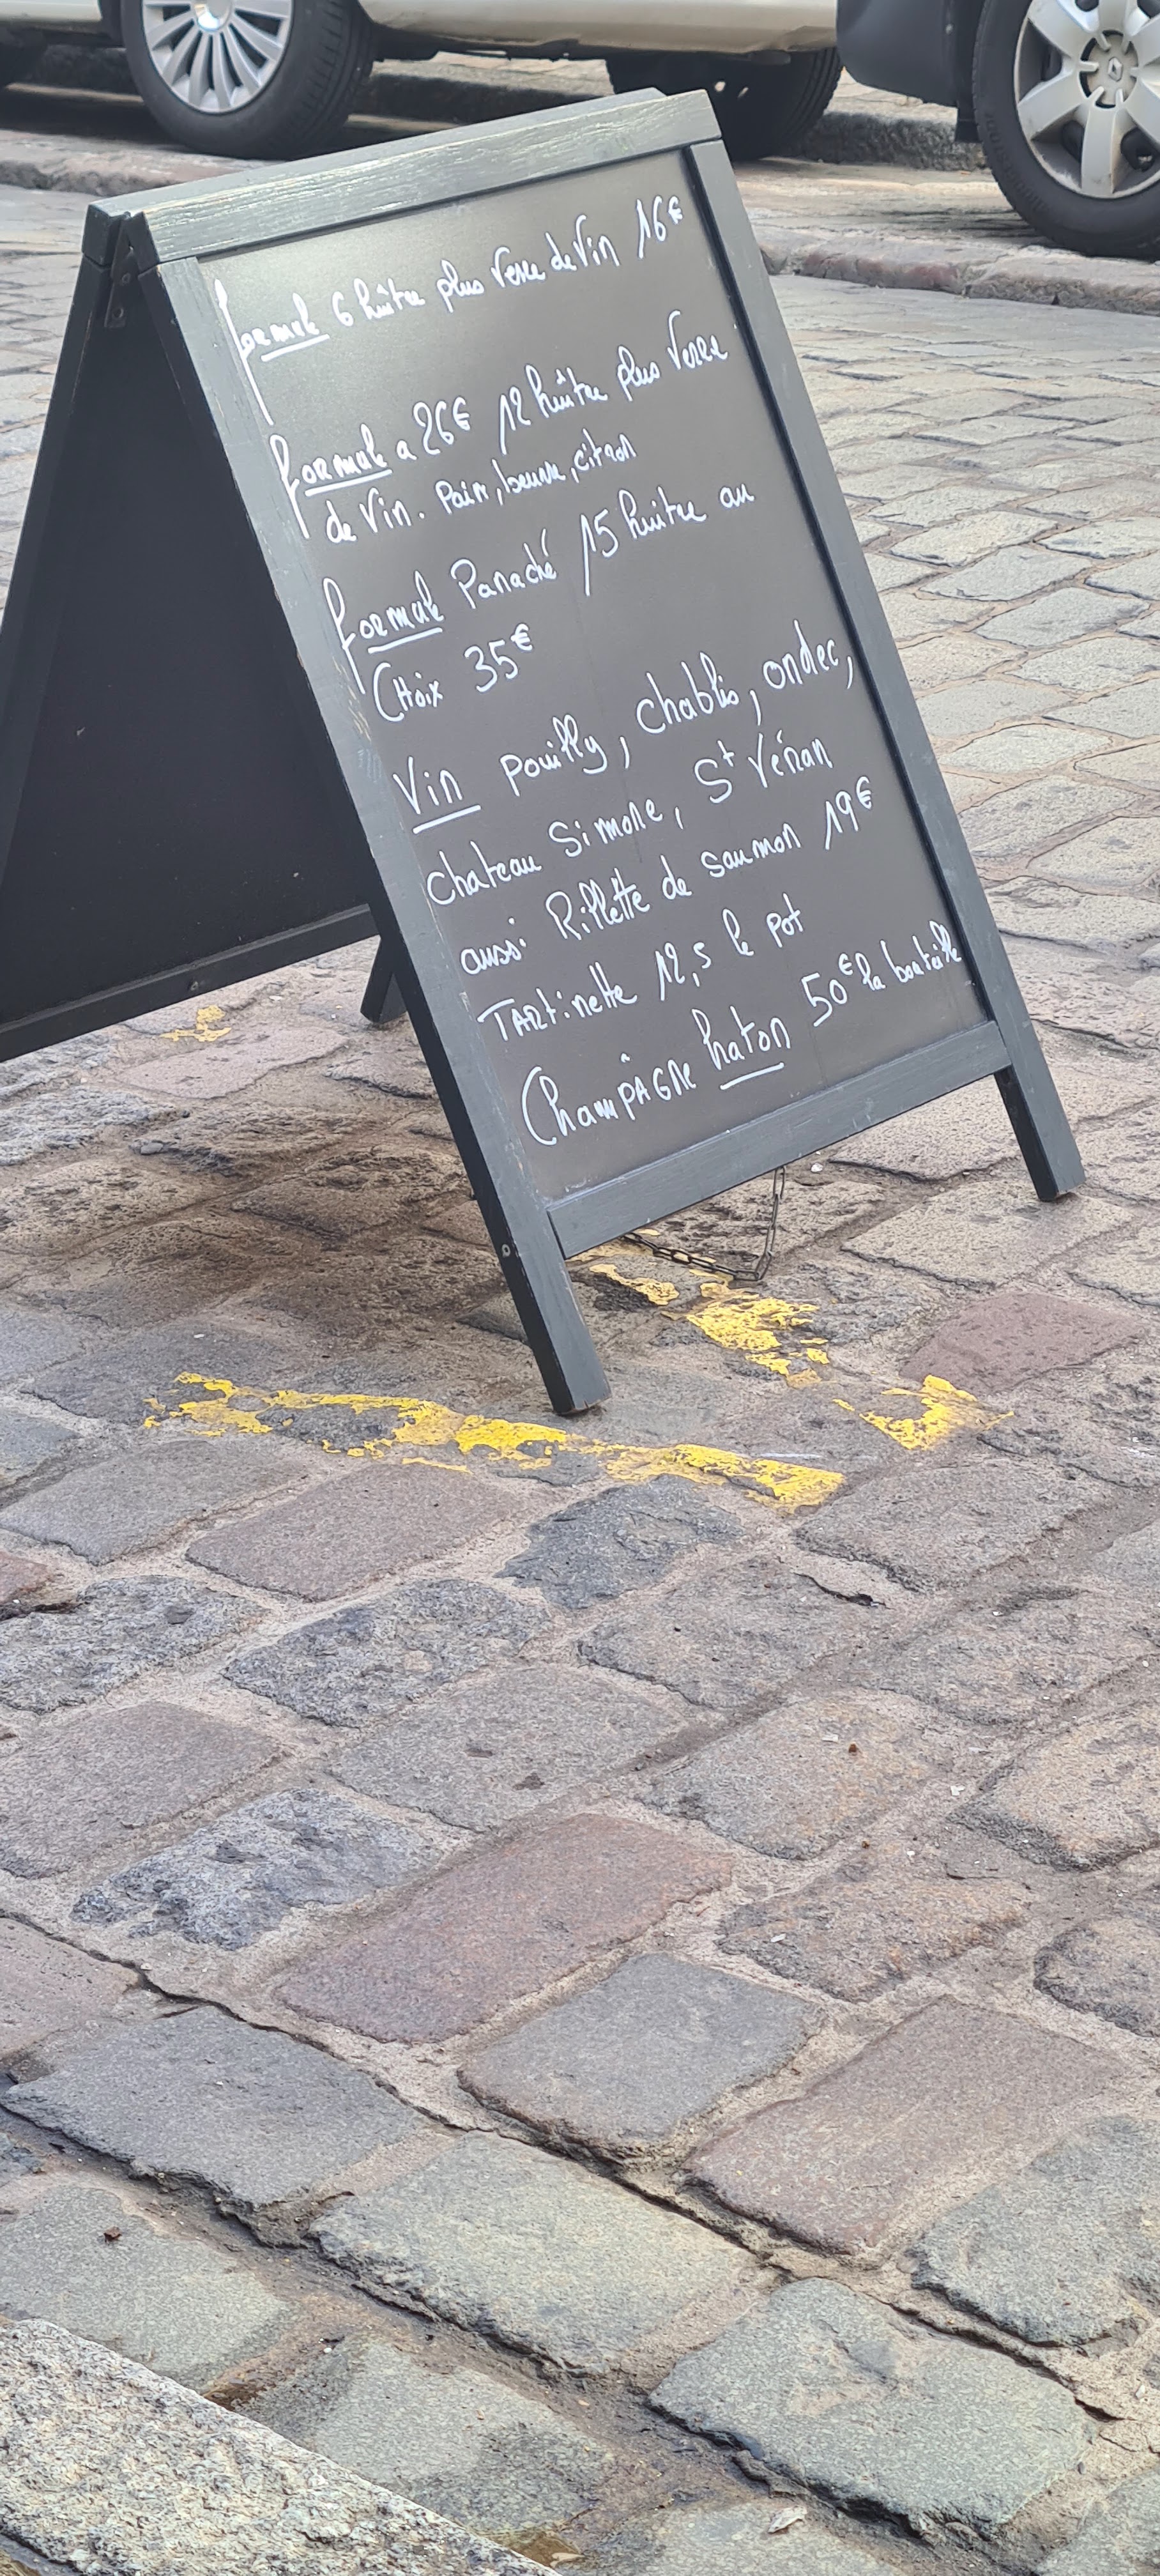 formule 6 huitre plus verre de Vin 16€
formule a 26€ 12 huitre plus Verre
de Vin. Pain, beurre, citron
formule Panaché 15 huitre au
CHoix 35€
Vin pouilly, chablis, ondec,
chateau Simone, St Véran
aussi Rillette de saumon 19€
TARTinette 12,5 le pot
ChampÂGNe haton 50€ la bouteille